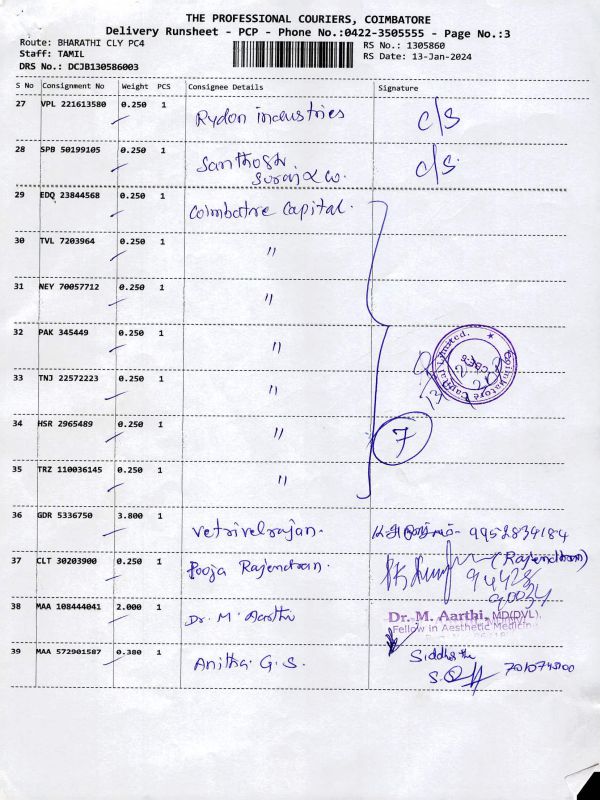 THE PROFESSIONAL COURIERS, COIMBATORE
Delivery Runsheet - PCP - Phone No.:0422-3505555 - Page No.:3
Route: BHARATHI CLY PC4 RS No.: 1305860
Staff: TAMIL RS Date: 13-Jan-2024
DRS No.: DCJB130586003
S No Consignment No Weight PCS Consignee Details Signature
27 VPL 221613580 0.250 1 Rydon industries c/s
28 SPB 50199105 0.250 1 Santhosh c/s
Suraj & co.
29 EDQ 23844568 0.250 1 Coimbatore Capital.
30 TVL 7203964 0.250 1 "
31 NEY 70057712 0.250 1 "
32 PAK 345449 0.250 1 "
Coimbatore Capital Limited.
33 TNJ 22572223 0.250 1 "
34 HSR 2965489 0.250 1 " 7
35 TRZ 110036145 0.250 1 "
36 GDR 5336750 3.800 1 Vetrivelrajan. 9952834184
37 CLT 30203900 0.250 1 Pooja Rajendran. (Rajendran)
94428
90034
38 MAA 108444041 2.000 1 Dr. M. Aarthi Dr. M. Aarthi, MD(DVL),
Fellow in Aesthetic Medicine
39 MAA 572901587 0.380 1 Anitha G.S. Siddhartha
S.